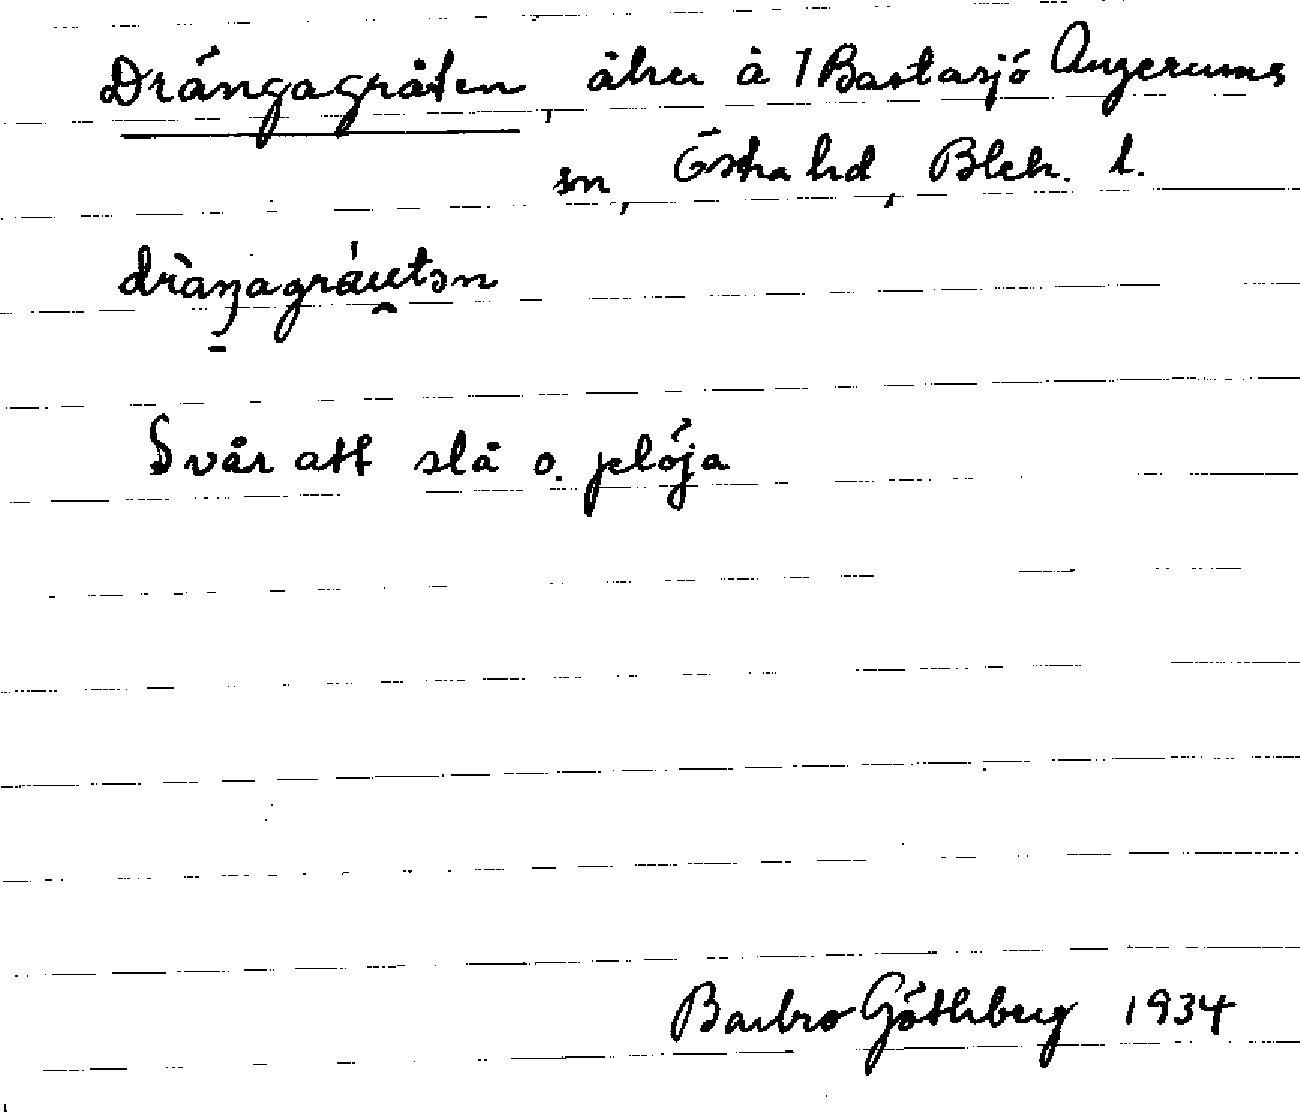 Drängagråten, åker å 1 Bastasjö Augerums
sn, Östra hd, Blek. l.
dràŋagráu̯tən
Svår att slå o. plöja
Barbro Göthberg 1934